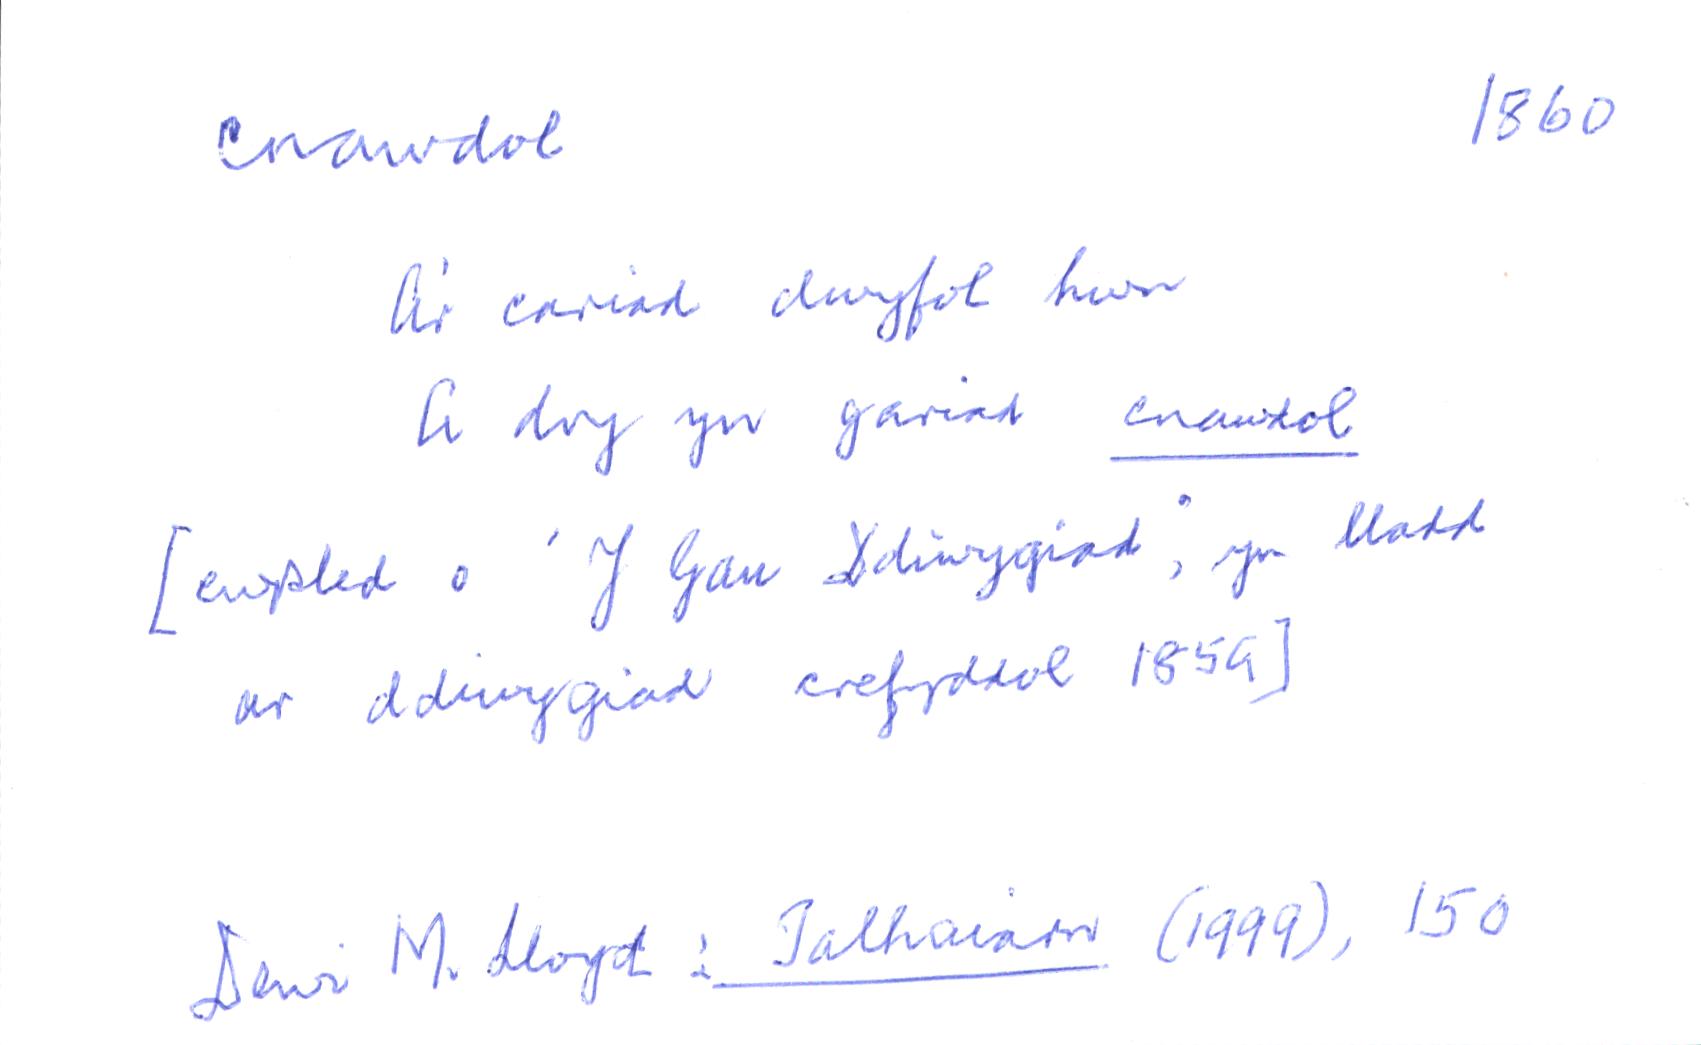 cnawdol 1860
A'r cariad dwyfol hwn
A dry yn gariad cnawdol
[cwpled o 'Y Gau Ddiwygiad', yn lladd
ar ddiwygiad crefyddol 1859]
Dewi M. Lloyd : Talhaiarn (1999), 150